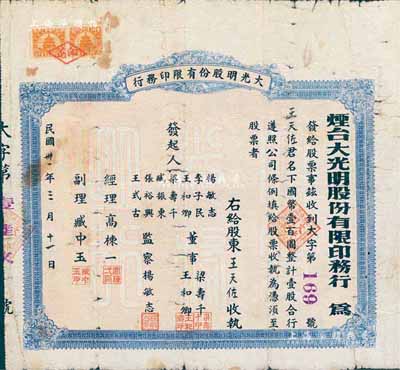 行務印限有份股明光大
煙台大光明股份有限印務行 爲
發給股票事茲收到大字第 169 號
王天佐君名下國幣壹百圓整計壹股合行
遵照公司條例填給股票收執為憑須至
股票者
右給股東王天佐收執
發起人
楊敏志
李子民
王和卿
梁壽千
臧振東
張裕興
王式古
董事
梁壽千
王和卿
監察楊敏志
經理高棟一
副理臧中玉
民國卅一年三月十一日
大字第
號